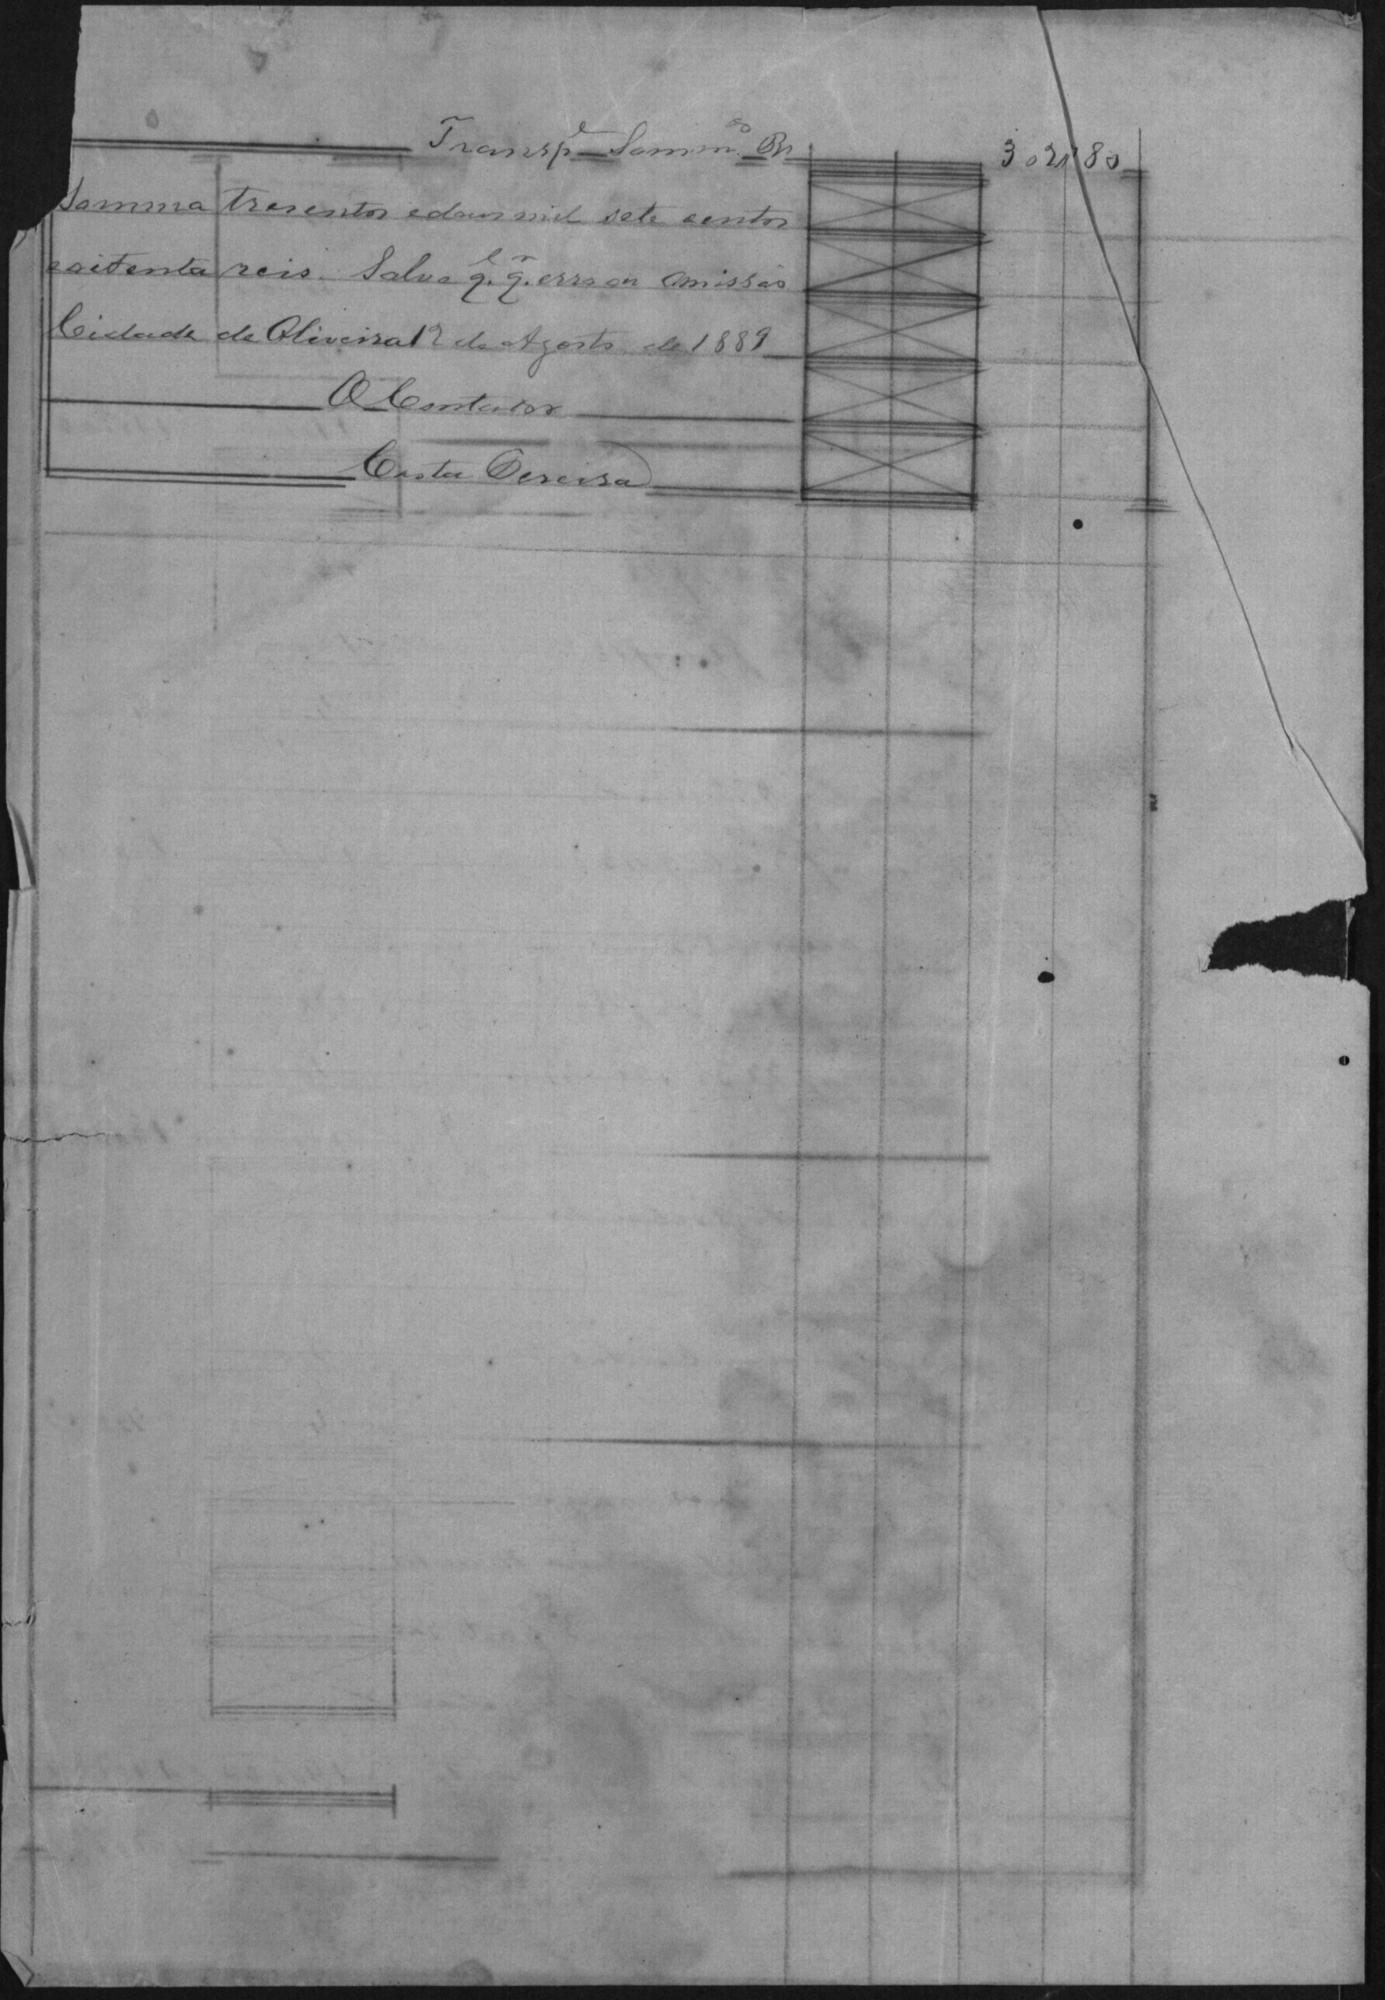 Transp.e Somm.as Rs 302780
Somma tresentos e dous mil sete centos
e oitenta reis. Salvo q.l q.r erro ou omissão
Cidade de Oliveira 12 de Agosto de 1889
O Contador
Costa Pereira